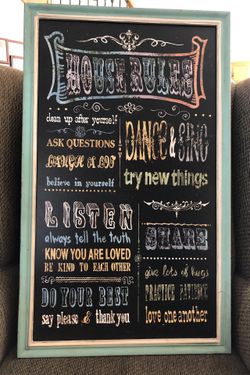 HOUSE RULES
clean up after yourself
ASK QUESTIONS
LAUGH A LOT
believe in yourself
DANCE & SING
try new things
LISTEN
always tell the truth
KNOW YOU ARE LOVED
BE KIND TO EACH OTHER
DO YOUR BEST
say please & thank you
SHARE
give lots of hugs
PRACTICE PATIENCE
love one another